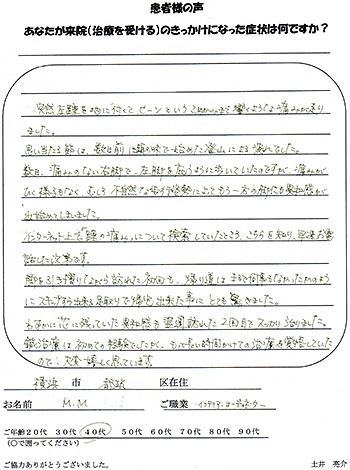 患者様の声
あなたが来院(治療を受ける)のきっかけになった症状は何ですか?
突然左踵を地に付くと、ピーンというこめかみまで響くような痛みが走り
ました。
思い当たる節は、数日前に趣味で始めた登山による疲れでした。
数日、痛みのない右脚で、左脚を庇うように歩いていたのですが、痛みが
ひく様子もなく、むしろ不自然な歩行姿勢によってもう一方の脚にも違和感が
出始めてしまいました。
インターネット上で「踵の痛み」について検索していたところ、こちらを知り、早速お電
話した次第です。
脚を引き摺りながら訪れた初回も、帰り道はまるで何事もなかったかのよう
にスキップすら出来る足取りで帰宅出来た事にとても驚きました。
わずかに芯に残っていた違和感も翌週訪れた2回目でスッカリ治りました。
鍼治療は初めての経験でしたが、もっと長い時間かけての治療を覚悟していた
ので、大変嬉しく思っています。
横浜 市 都筑 区在住
お名前 M.M ご職業 インテリアコーディネーター
ご年齢20代 30代 40代 50代 60代 70代 80代 90代
(○で囲ってください)
ご協力ありがとうございました。 土井 亮介